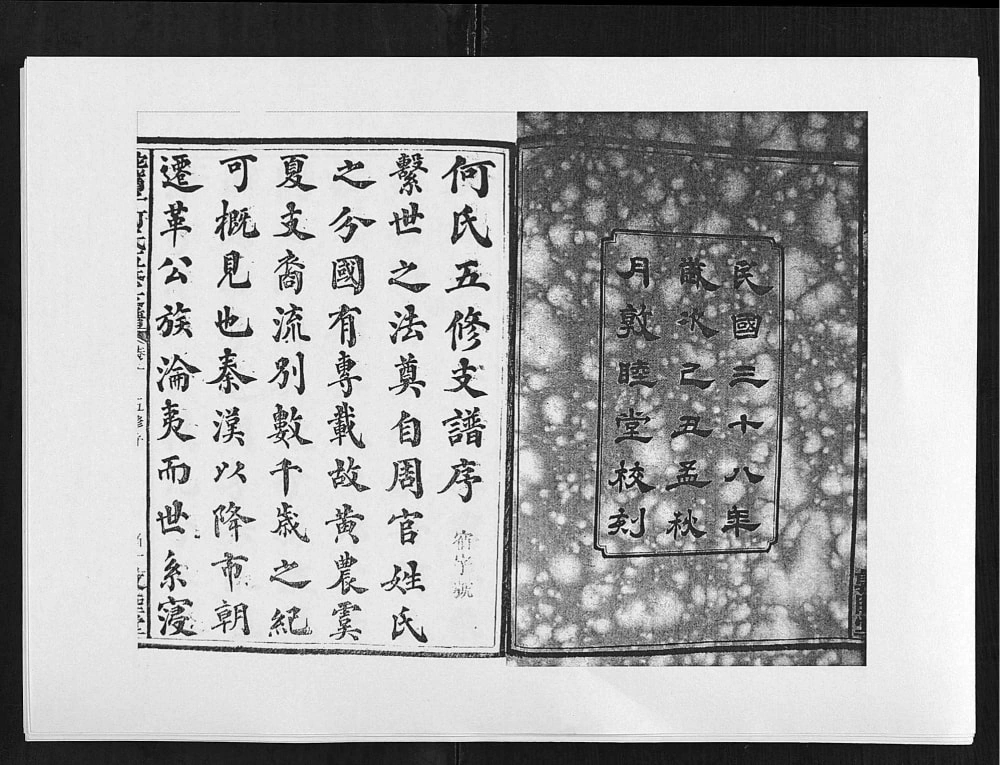 民國三十八年
歲次己丑孟秋
月敦睦堂校刻
何氏五修支譜序
宿字號
繫世之法奠自周官姓氏
之分國有專載故黃農虞
夏支裔流別數千歲之紀
可概見也秦漢以降市朝
遷革公族淪夷而世系寖